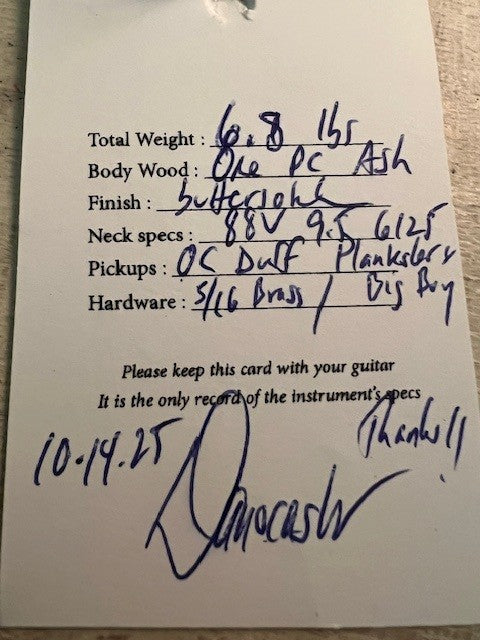 Total Weight : 6.8 lbs
Body Wood : One pc Ash
Finish : butterscotch
Neck specs : 88V 9.5 6125
Pickups : OC Duff Plankster &
Hardware : 5/16 Brass / Big Boy
Please keep this card with your guitar
It is the only record of the instrument's specs
10.14.25 Thanks!!
Danocaster